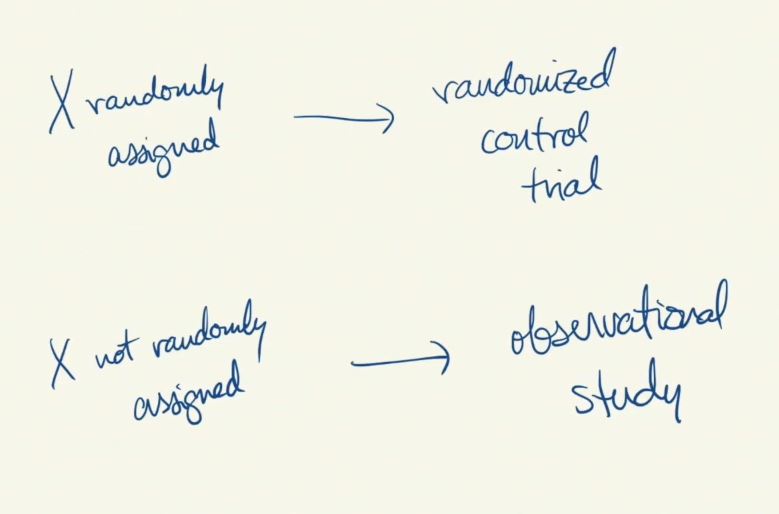 X randomly
assigned
randomized
control
trial
X not randomly
assigned
observational
study